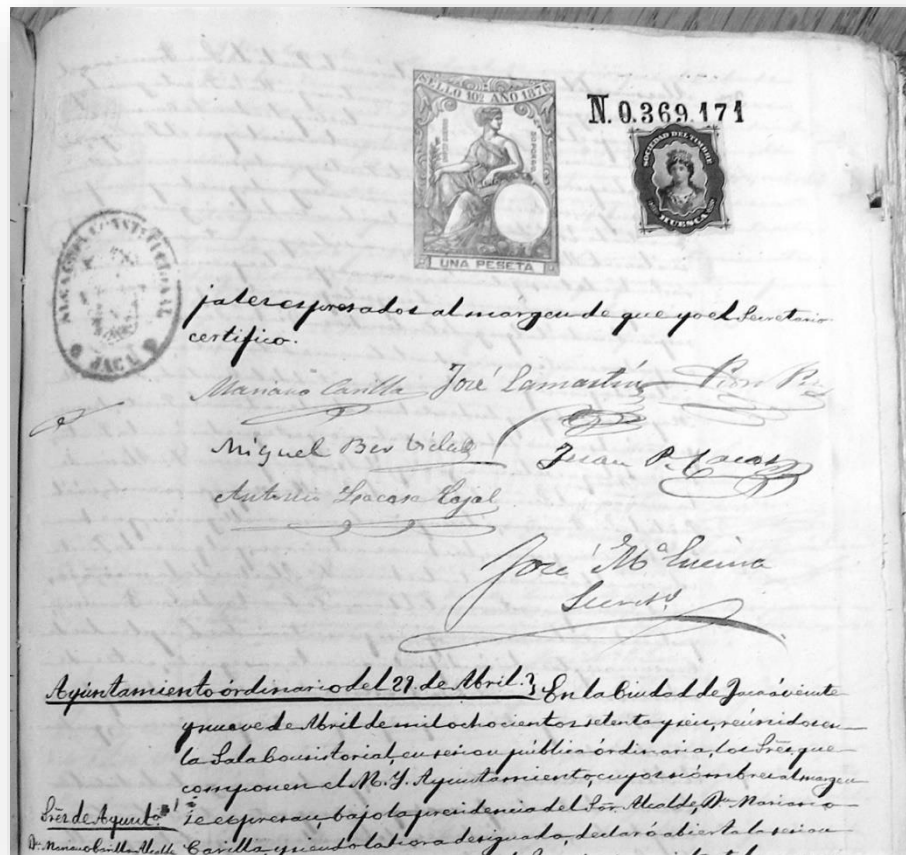 SELLO 10º AÑO 187
UNA PESETA
N. 0.369.171
SOCIEDAD DEL TIMBRE
HUESCA
ALCALDIA CONSTITUCIONAL
JACA
jales espresados al margen de que yo el Secretario
certifico.
Mariano Carilla José Lamartín
Miguel Bes Vidal Juan P.
Antonio Lacasa Cajal
José Mª
Secretº
Ayuntamiento órdinario del 29 de Abril. En la Ciudad de Jaca á veinte
y nueve de Abril de mil ochocientos setenta y seis, reúnidos en
la Sala Consistorial, en sesion pública órdinaria, los Sres. que
componen el M. Y. Ayuntamiento, cuyos nómbres al margen
Sres. de Ayuntº
se espresan, bajo la presidencia del Sor. Alcalde, Dn. Mariano
Dn. Mariano Carilla Alcalde
Carilla, y siendo la hora designada, declaró abierta la sesion